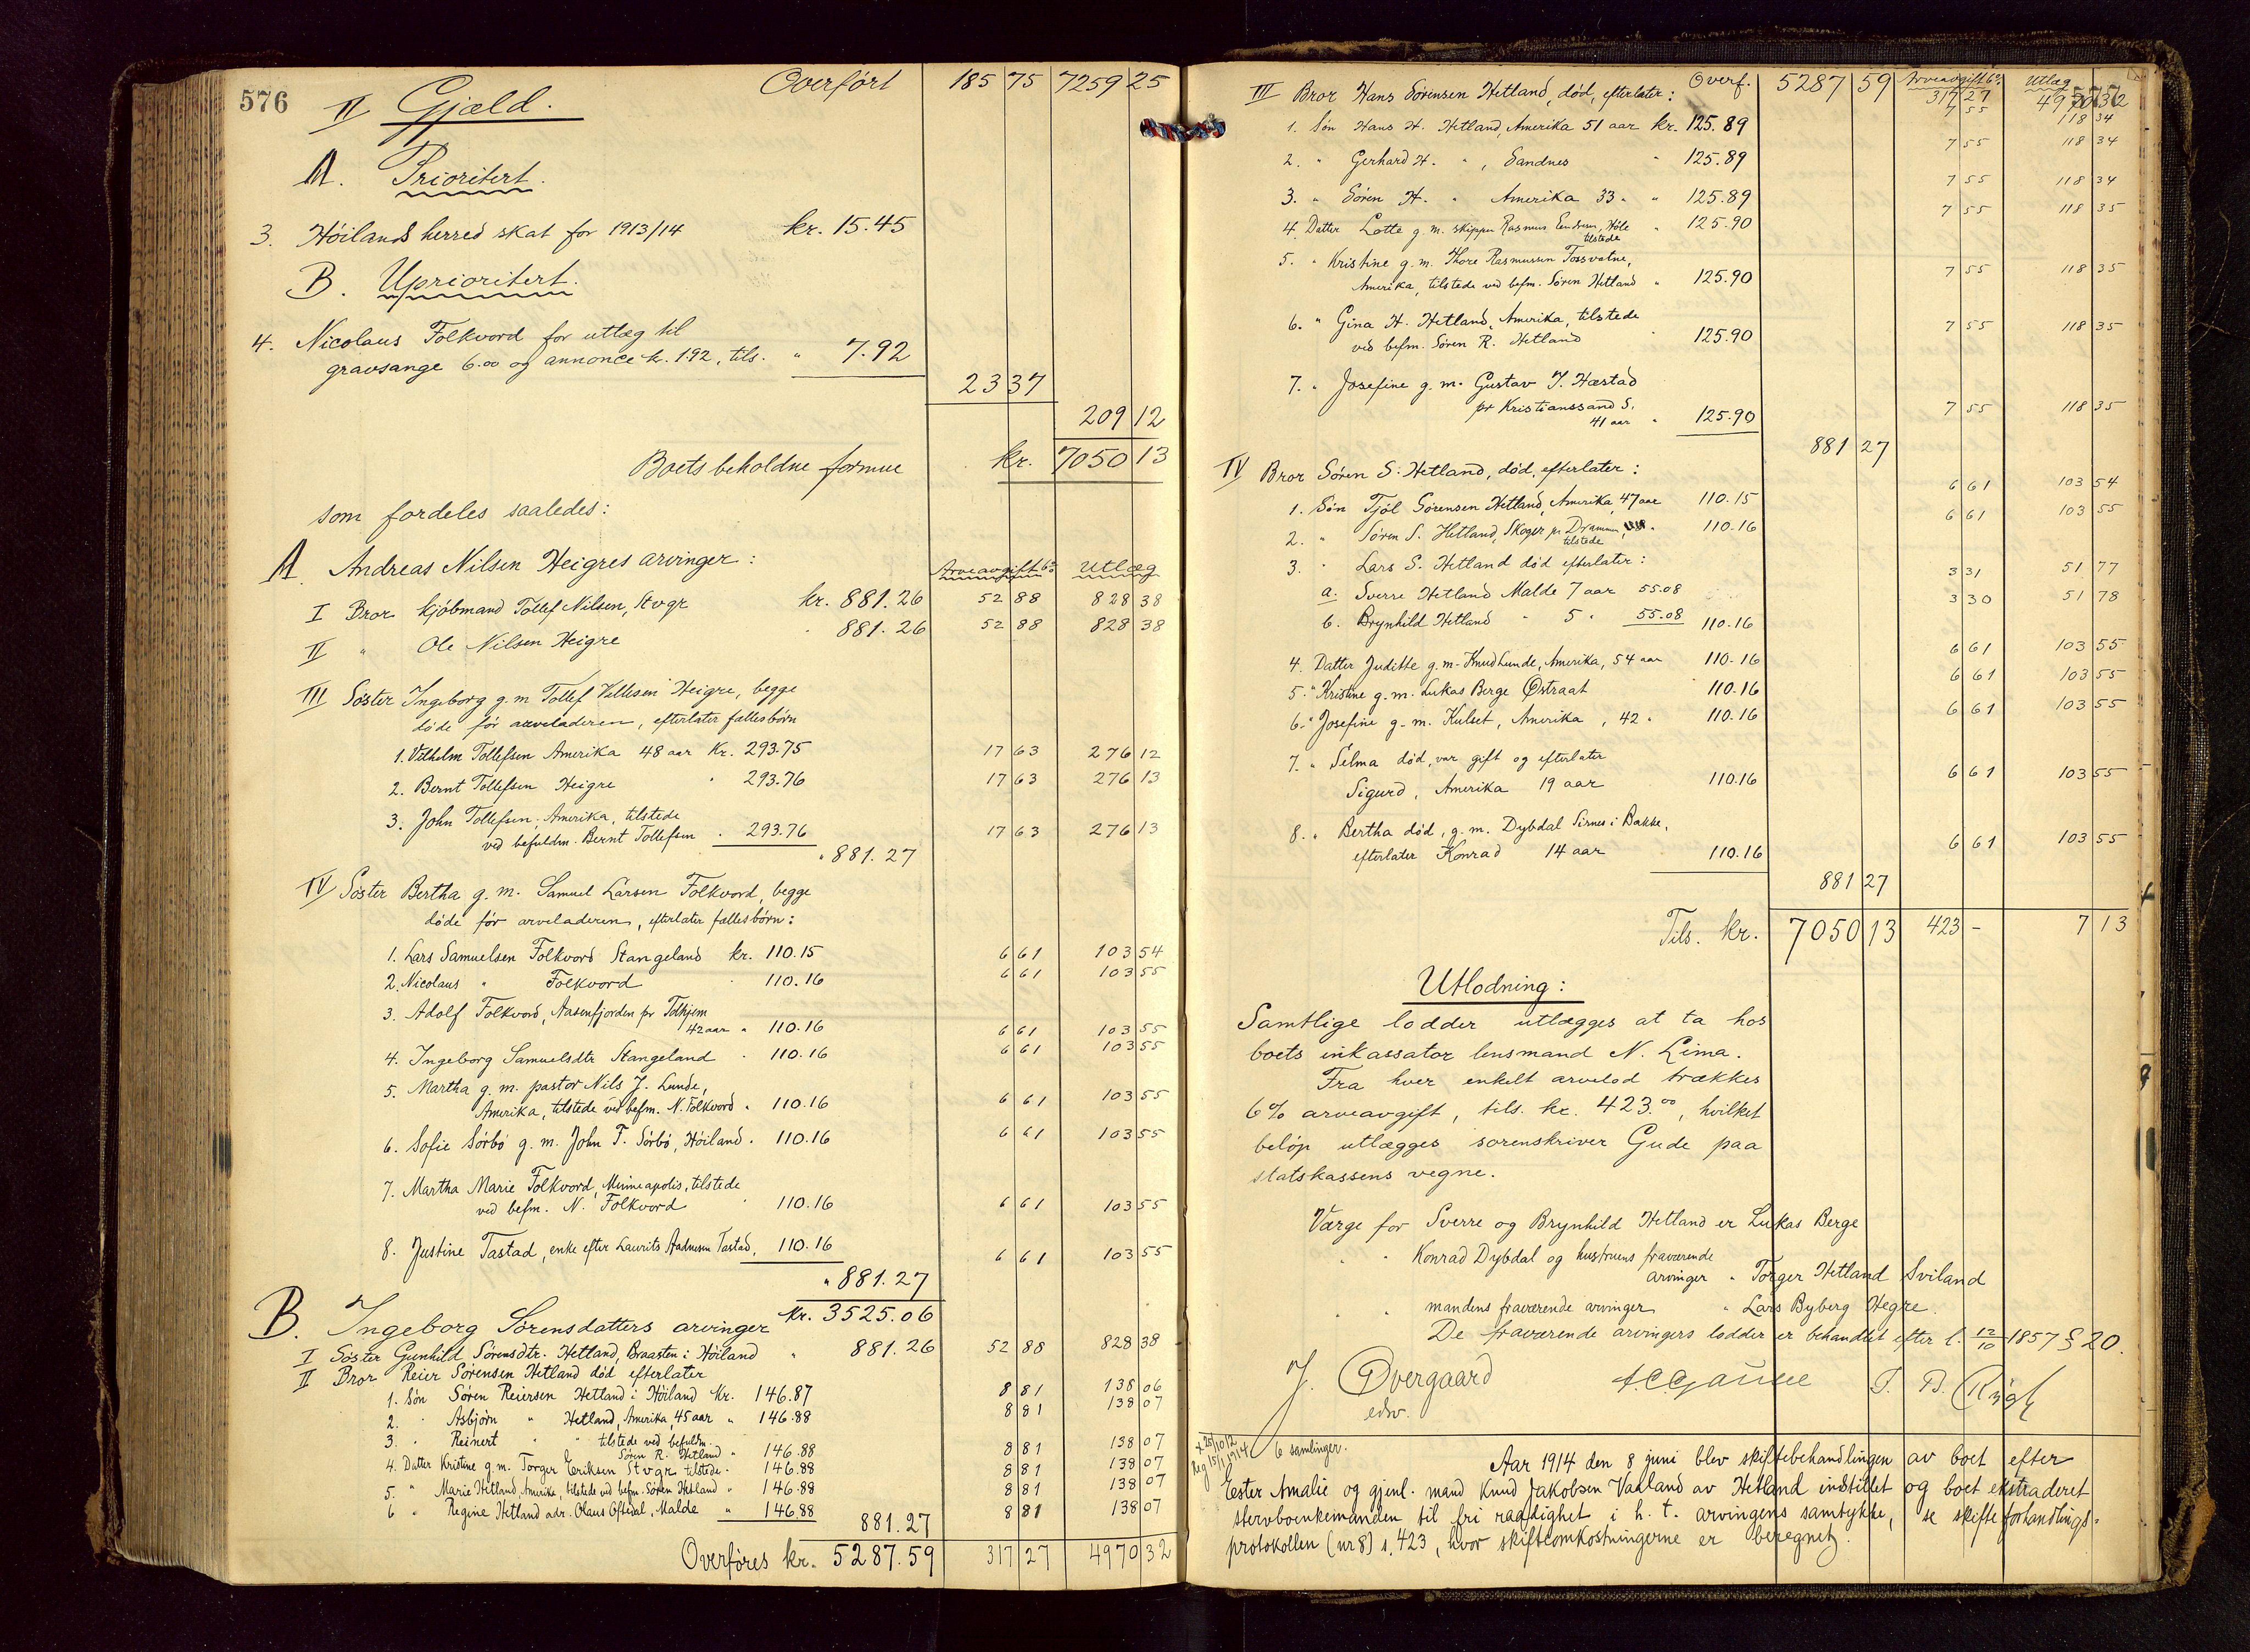 576
II Gjæld. Overført 185 75 7259 25
A. Prioritert.
3. Höilands herred skat for 1913/14 kr. 15.45
B. Uprioritert.
4. Nicolaus Folkvord for utlæg til
gravsange 6.00 og annonce k. 1.92, tils. " 7.92
23 37
209 12
Boets beholdne formue kr. 7050 13
som fordeles saaledes:
A. Andreas Nilsen Heigres arvinger: Arveavgift 6% Utlæg
I Bror kjöbmand Tollef Nilsen, Stvgr kr. 881.26 52 88 828 38
II " Ole Nilsen Heigre " 881.26 52 88 828 38
III Söster Ingeborg g.m. Tollef Villesen Heigre, begge
döde før arveladeren, efterlater fællesbörn
1. Vilhelm Tollefsen Amerika 48 aar Kr. 293.75 17 63 276 12
2. Bernt Tollefsen Heigre " 293.76 17 63 276 13
3. John Tollefsen, Amerika, tilstede
ved befuldm. Bernt Tollefsen . 293.76 17 63 276 13
" 881.27
IV Söster Bertha g.m. Samuel Larsen Folkvord, begge
döde før arveladeren, efterlater fællesbörn:
1. Lars Samuelsen Folkvord Stangeland kr. 110.15 6 61 103 54
2. Nicolaus " Folkvord " 110.16 6 61 103 55
3. Adolf Folkvord, Aasenfjorden pr Tdhjem
42 aar " 110.16 6 61 103 55
4. Ingeborg Samuelsdtr Stangeland . 110.16 6 61 103 55
5. Martha g.m. pastor Nils J. Lunde,
Amerika, tilstede ved befm. N. Folkvord " 110.16 6 61 103 55
6. Sofie Sörbö g.m. John T. Sörbö, Höiland . 110.16 6 61 103 55
7. Martha Marie Folkvord, Minneapolis, tilstede
ved befm. N. Folkvord " 110.16 6 61 103 55
8. Justine Tastad, enke efter Laurits Aadnesen Tastad, 110.16 6 61 103 55
" 881.27
Kr. 3525.06
B. Ingeborg Sörensdatters arvinger
I Söster Gunhild Sörensdtr. Hetland, Braasten i Höiland " 881.26 52 88 828 38
II Bror Reier Sörensen Hetland död efterlater
1. Sön Sören Reiersen Hetland i Höiland Kr. 146.87 8 81 138 06
2. " Asbjörn " Hetland, Amerika, 45 aar " 146.88 8 81 138 07
3. " Reinert " " tilstede ved befuldm.
Sören R. Hetland " 146.88 8 81 138 07
4. Datter Kristine g.m. Torger Eriksen Stvgr tilstede . 146.88 8 81 138 07
5. " Marie Hetland, Amerika, tilstede ved befm. Sören Hetland " 146.88 8 81 138 07
6 " Regine Hetland adr. Olaus Oftedal, Malde " 146.88 8 81 138 07
881.27
Overføres kr. 5287.59 317 27 4970 32
577
Overf. 5287 59 Arveavgift 6% Utlæg
317 27 4970 32
III Bror Hans Sörensen Hetland, död, efterlater:
1. Sön Hans H. Hetland, Amerika 51 aar kr. 125.89 7 55 118 34
2. " Gerhard H. " , Sandnes " 125.89 7 55 118 34
3. " Sören H. " Amerika 33 " " 125.89 7 55 118 34
4. Datter Lotte g.m. skipper Rasmus Endresen, Höle " 125.90 7 55 118 35
tilstede
5. " Kristine g.m. Thore Rasmussen Fossvatne,
Amerika, tilstede ved befm. Sören Hetland " 125.90 7 55 118 35
6. " Gina H. Hetland, Amerika, tilstede
ved befm. Sören R. Hetland 125.90 7 55 118 35
7. " Josefine g.m. Gustav J. Hæstad
pr Kristianssand S.
41 aar " 125.90 7 55 118 35
881 27
IV Bror Sören S. Hetland, död, efterlater:
1. Sön Tjöl Sörensen Hetland, Amerika, 47 aar 110.15 6 61 103 54
2. " Sören S. Hetland, Skoger pr Drammen, " 110.16 6 61 103 55
tilstede
3. " Lars S. Hetland död efterlater:
a. Sverre Hetland Malde 7 aar 55.08 3 31 51 77
b. Brynhild Hetland " 5 " 55.08 110.16 3 30 51 78
4. Datter Juditte g.m. Knud Lunde, Amerika, 54 aar 110.16 6 61 103 55
5. " Kristine g.m. Lukas Berge Østraat 110.16 6 61 103 55
6. " Josefine g.m. Kulset, Amerika, 42 " 110.16 6 61 103 55
7. " Selma död, var gift og efterlater
Sigurd, Amerika 19 aar 110.16 6 61 103 55
8. " Bertha död, g.m. Dybdal Sirnes i Bakke,
efterlater Konrad 14 aar 110.16 6 61 103 55
881 27
Tils. kr. 7050 13 423 - 7 13
Utlodning:
Samtlige lodder utlægges at ta hos
boets inkassator lensmand N. Lima.
Fra hver enkelt arvelod trækkes
6% arveavgift, tils. kr. 423.00, hvilket
belöp utlægges sorenskriver Gude paa
statskassens vegne.
Værge for Sverre og Brynhild Hetland er Lukas Berge
" " Konrad Dybdal og hustruens fraværende
arvinger " Torger Hetland Sviland
" " mandens fraværende arvinger " Lars Byberg Hegre.
De fraværende arvingers lodder er behandlet efter l. 12/10 1857 § 20.
J. Øvergaard
edsv.
P. B. Rygh
6 samlinger.
Aar 1914 den 8 juni blev skiftebehandlingen av boet efter
Ester Amalie og gjenl. mand Knud Jakobsen Vaaland av Hetland indstillet og boet ekstraderet
stervboenkemanden til fri raadighet i h. t. arvingens samtykke, se skifteforhandlings-
protokollen (nr 8) s. 423, hvor skifteomkostningerne er beregnet.